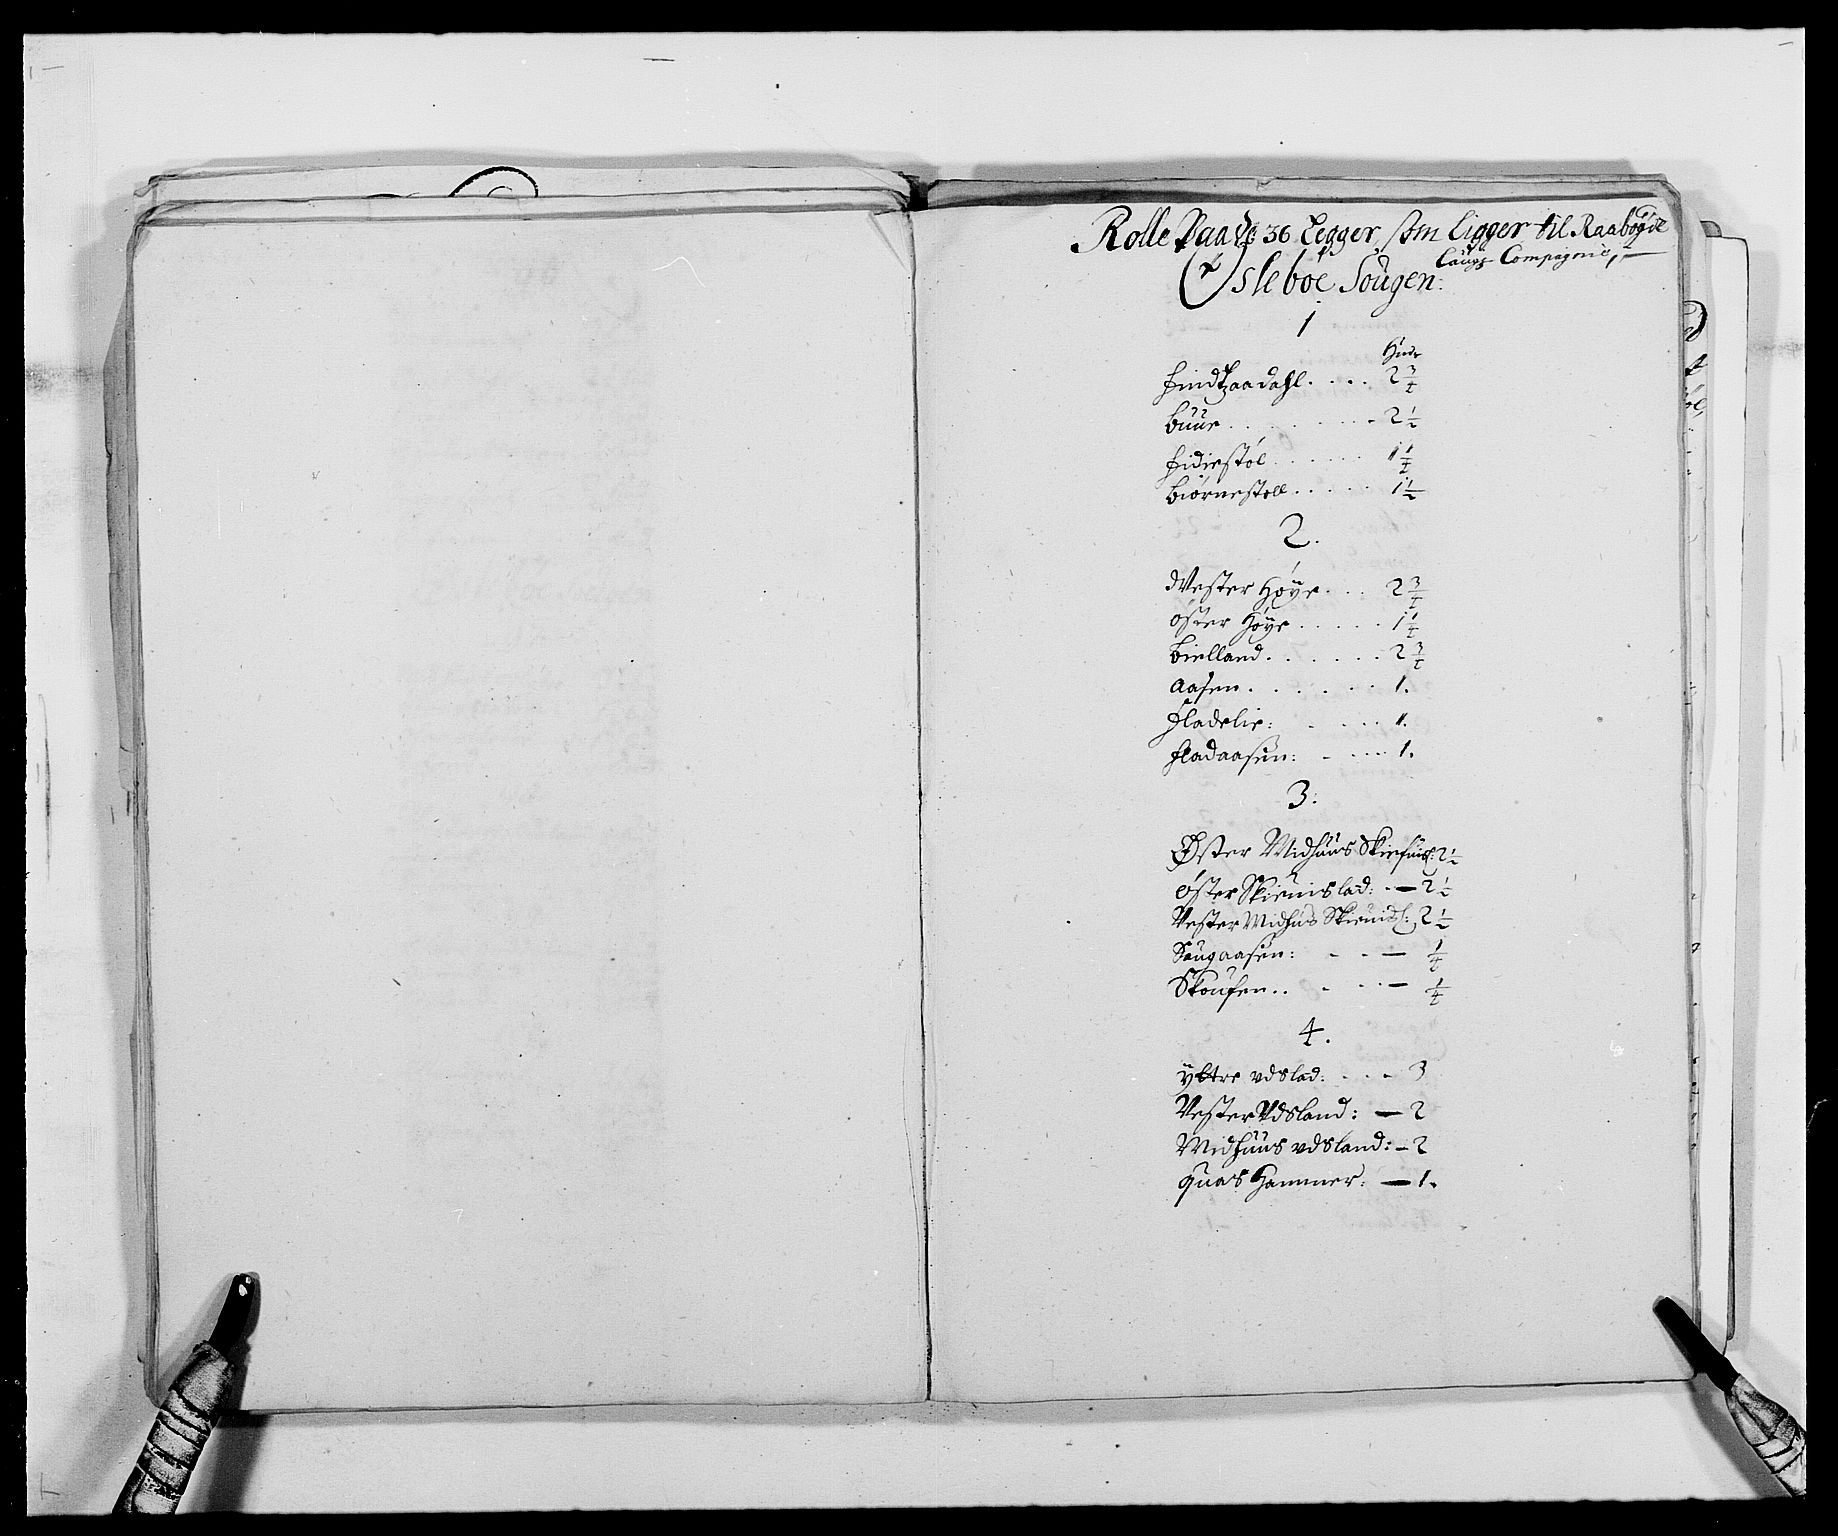 Rolle Paa de 36 Legger, som ligger til Raabøigde
Laugs Compagnie,
Osleboe Sougen:
1
Hude
findtzaadahl. . . . 2 3/4
Buur . . . . . . . . 2 1/2
fidiestøl . . . . . . 1 1/4
Biørnestoll . . . . . 1 1/2
2.
Vester Høye . . . 2 3/4
Øster Høye . . . . . 1 1/4
Bielland . . . . . . 2 3/4
Aasen . . . . . . 1.
fladelie: . . . . . 1.
fladaasen: . . . . 1.
3:
Øster Midhuus : 2 1/2
Øster Skieuislad: . — 2 1/2
Vester Midhus Skieuisl: 2 1/2
Saugaasen: . . — 1/4
Skoufen . . . . . — 1/4
4.
Ytre udslad: . . . 3
Vester Vdsland: — 2
Midhuus vdsland: – 2
Quas Hammer: — 1.